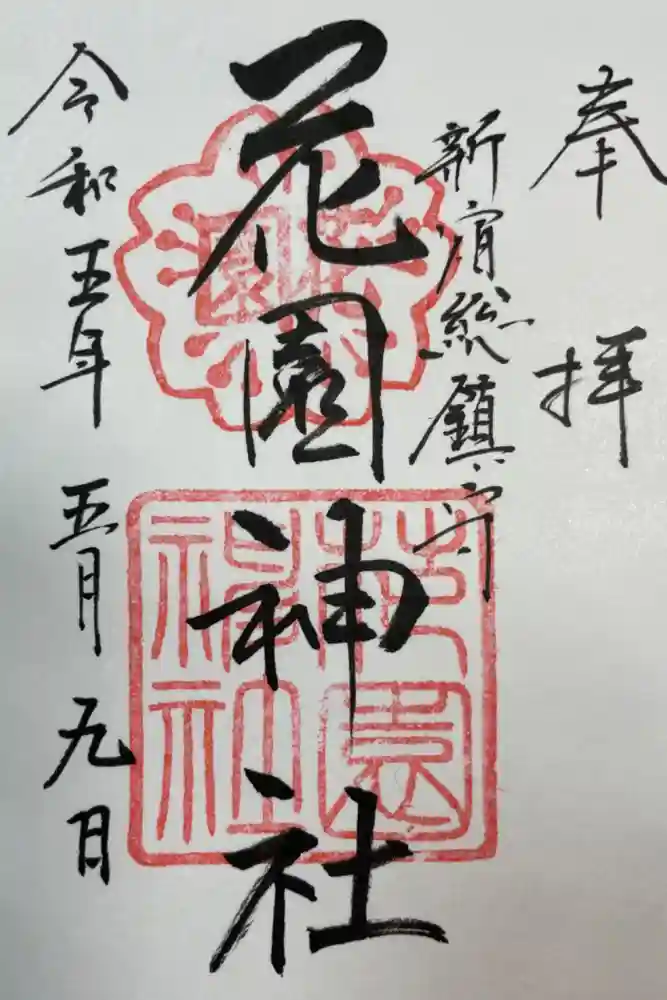 奉拝
新宿総鎮守
花園神社
令和五年五月九日
花園神社